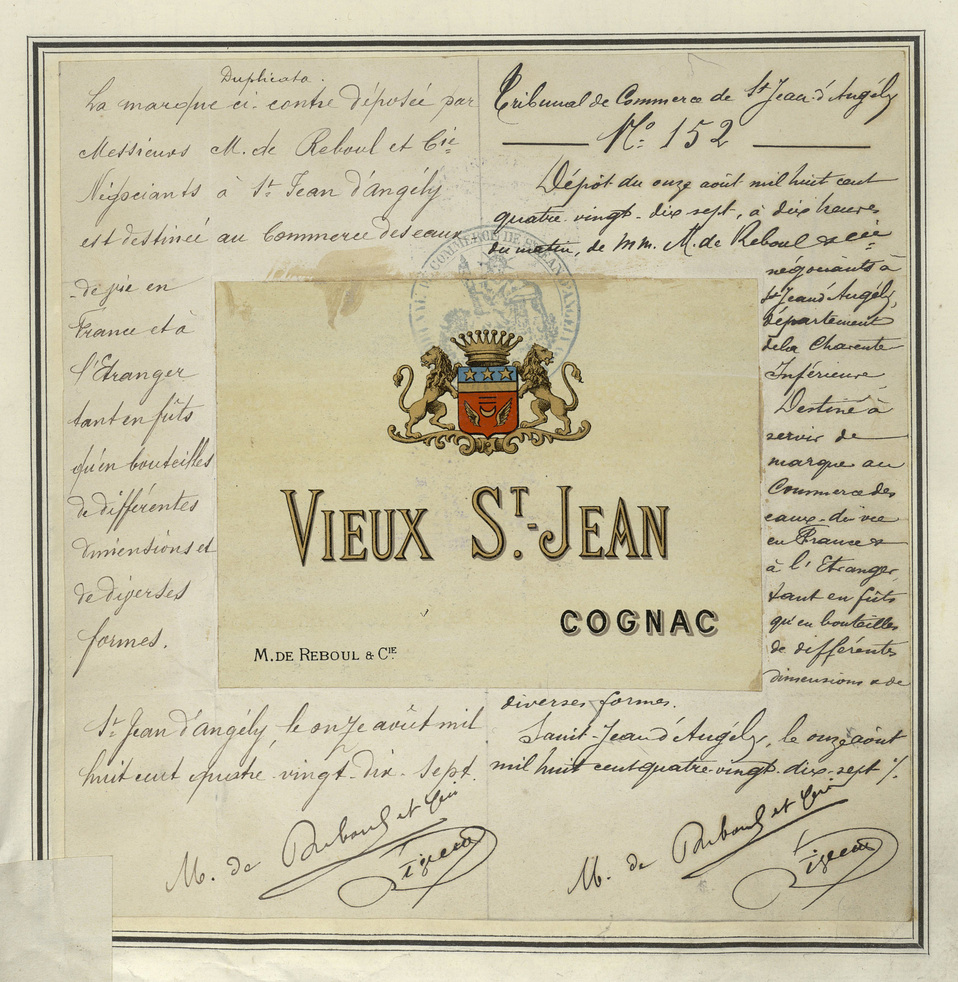 Duplicata.
La marque ci-contre déposée par
Messieurs M. de Reboul et Cie
Négociants à St Jean d'angély
est destinée au Commerce des eaux
-de-vie en
France et à
l'Etranger
tant en fûts
qu'en bouteilles
de différentes
dimensions et
de diverses
formes.
St Jean d'angély, le onze août mil
huit cent quatre-vingt-dix-sept.
M. de Reboul et Cie
Tribunal de Commerce de St Jean-d'Angély
No: 152
Dépôt du onze août mil huit cent
quatre-vingt-dix sept, à dix heures
du matin, de MM. M. de Reboul & Cie
négociants à
St Jean d'Angély,
département
de la Charente
Inférieure
Destiné à
servir de
marque au
Commerce des
eaux-de-vie
en France &
à l'Etranger,
tant en fûts
qu'en bouteilles
de différentes
dimensions & de
diverses formes.
Saint-Jean d'Angély, le onze août
mil huit cent quatre-vingt-dix-sept ./.
M. de Reboul et Cie
COMMERCE DE ST JEAN D'ANGELY
VIEUX ST.-JEAN
COGNAC
M. DE REBOUL & CIE.